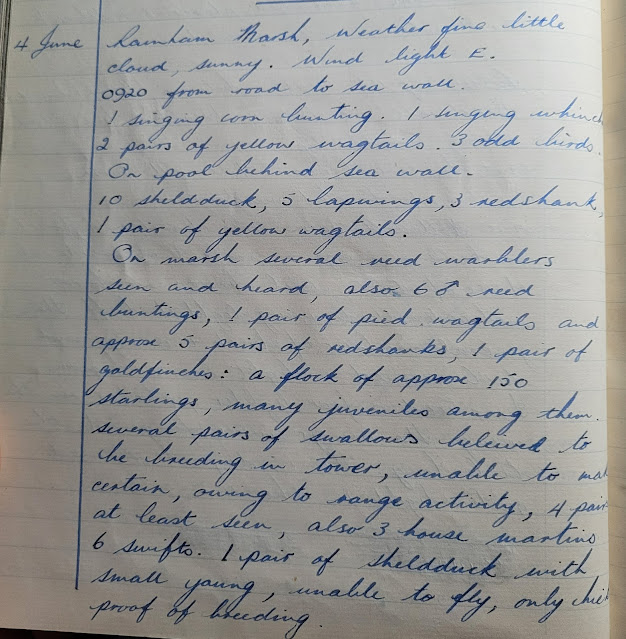 4 June Rainham Marsh, Weather fine little
cloud, sunny. Wind light E.
0920 from road to sea wall.
1 singing corn bunting. 1 singing whinch
2 pairs of yellow wagtails. 3 odd birds.
On pool behind sea wall.
10 sheldduck, 5 lapwings, 3 redshank,
1 pair of yellow wagtails.
On marsh several reed warblers
seen and heard, also 6 ♂ reed
buntings, 1 pair of pied wagtails and
approx 5 pairs of redshanks, 1 pair of
goldfinches: a flock of approx 150
starlings, many juveniles among them.
several pairs of swallows beleived to
be breeding in tower, unable to mak
certain, owing to range activity, 4 pairs
at least seen, also 3 house martins
6 swifts. 1 pair of sheldduck with
small young, unable to fly, only
proof of breeding.